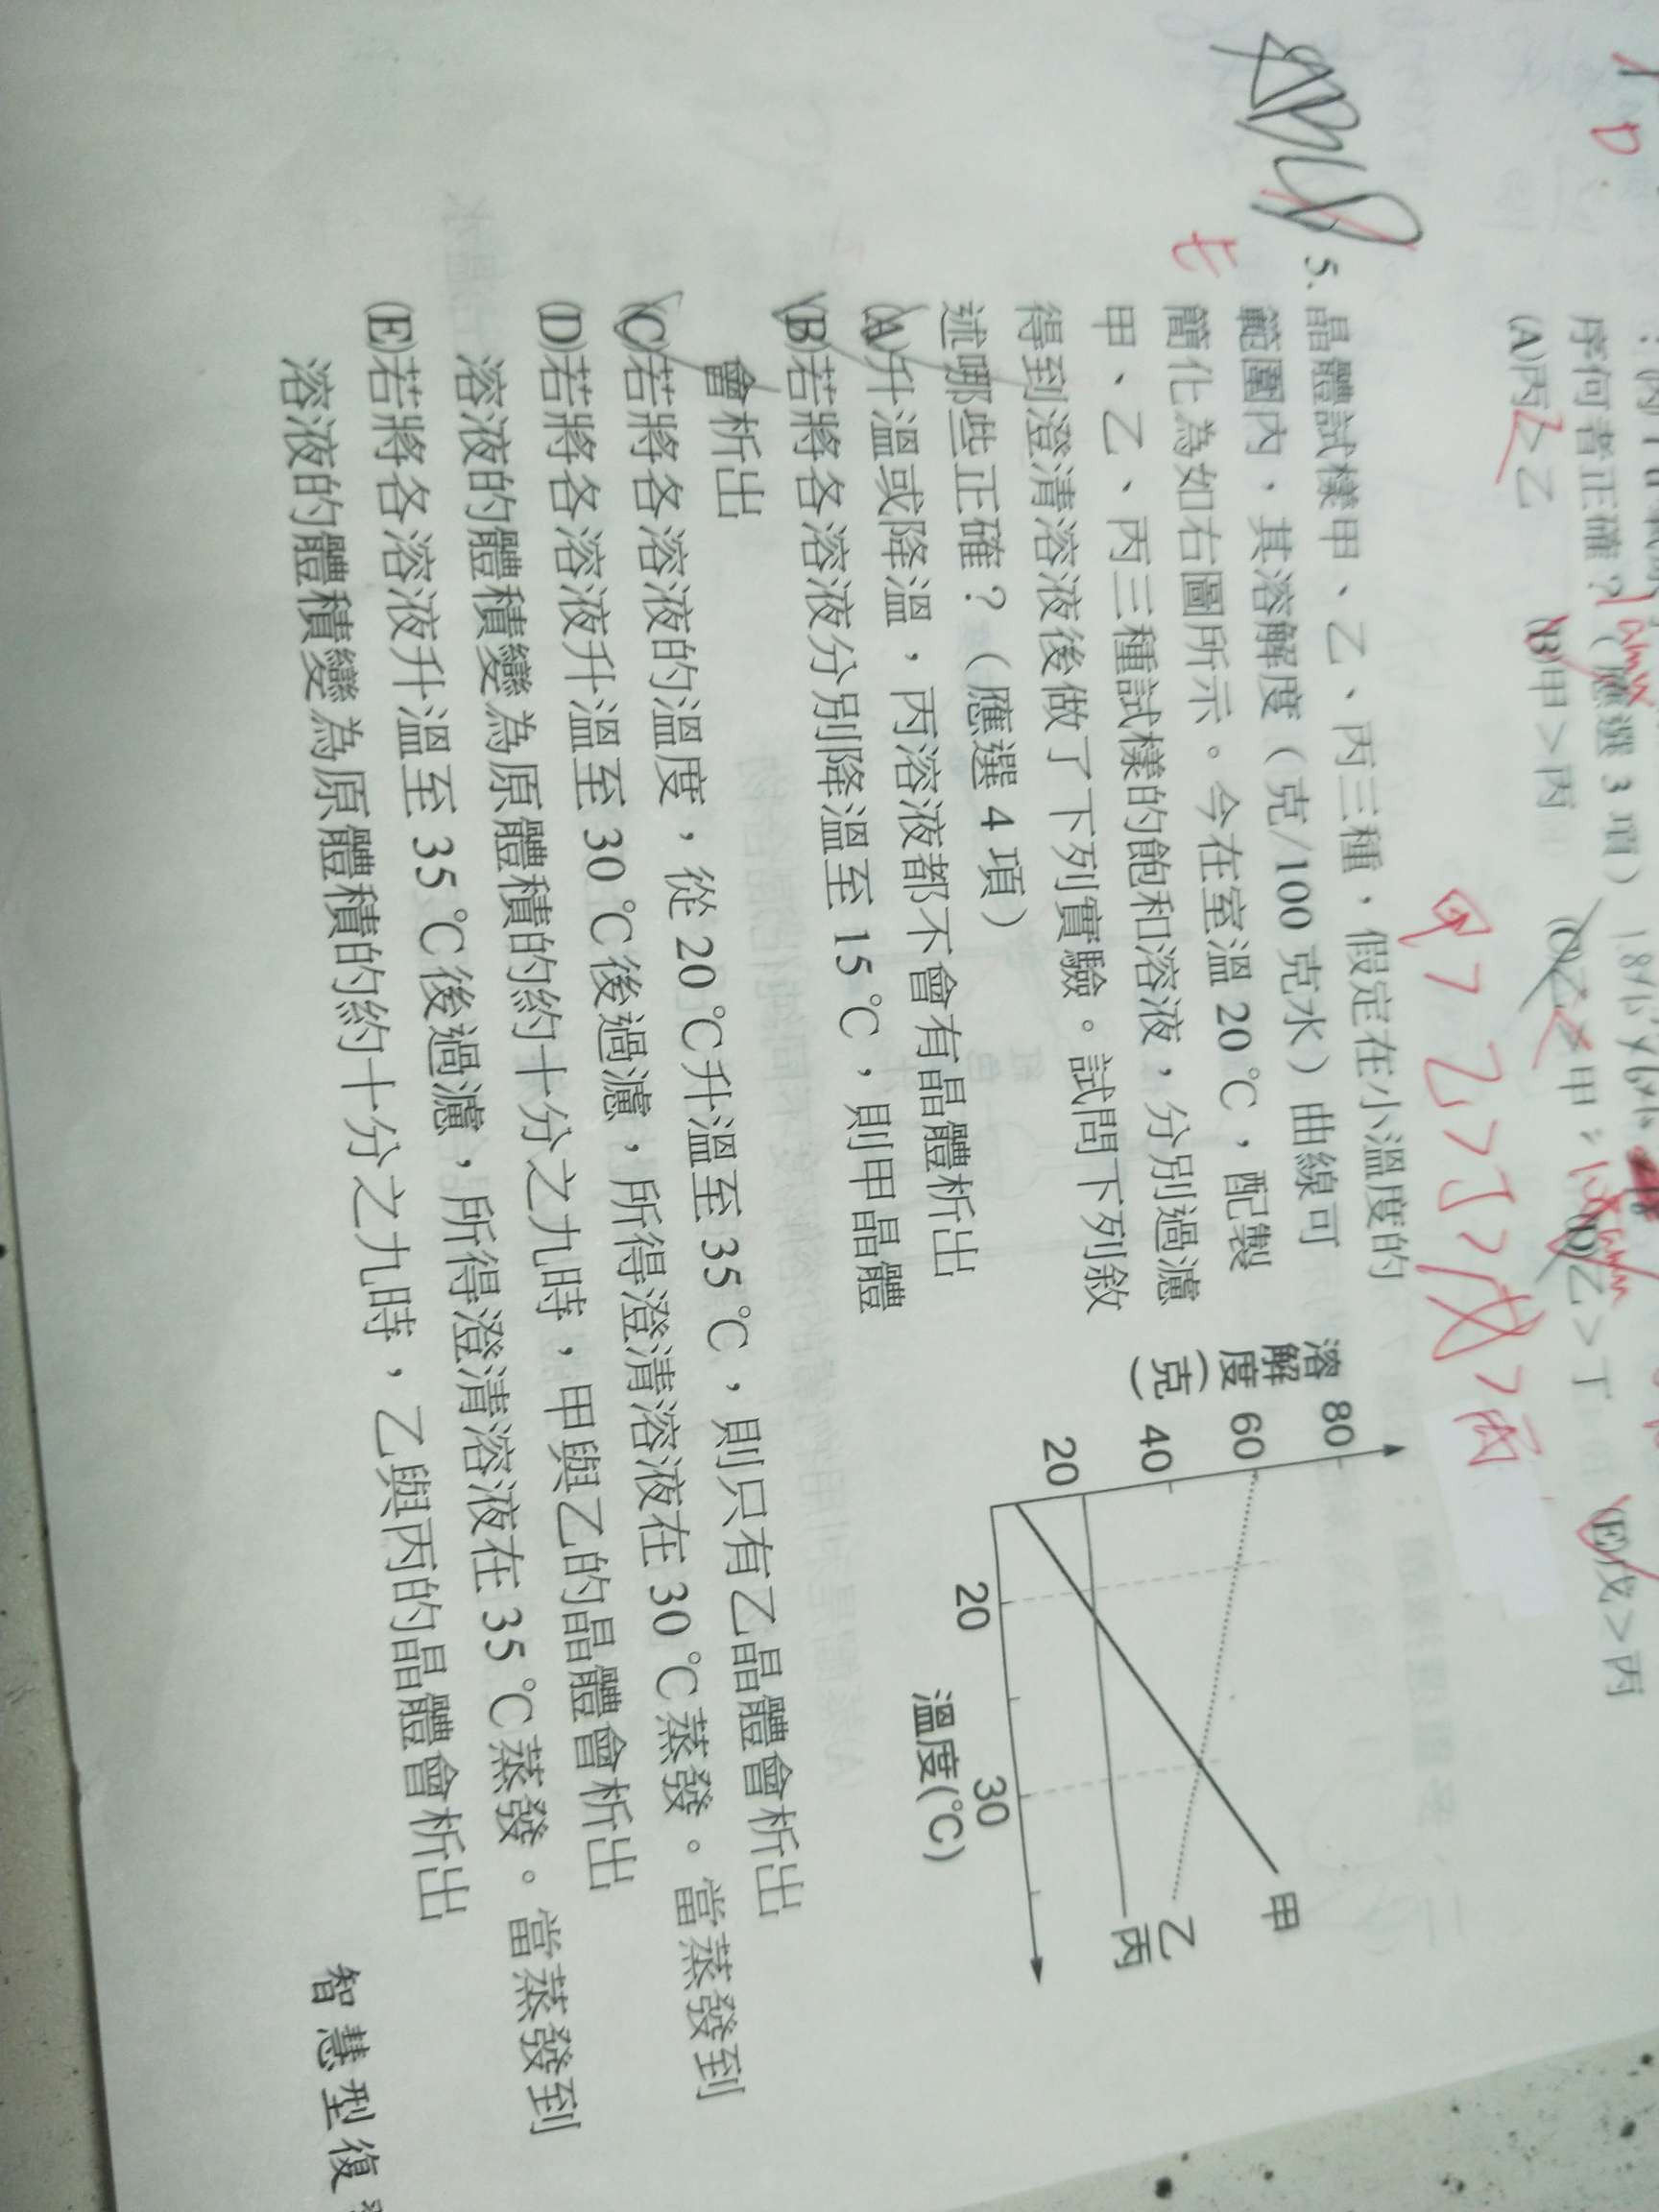 序何者正確？（應選 3 項）
(A)丙＞乙 (B)甲＞丙 (C)乙＞甲 (D)乙＞丁 (E)戊＞丙
甲＞乙＞丁＞戊＞丙
5. 晶體試樣甲、乙、丙三種，假定在小溫度的
範圍內，其溶解度（克/100 克水）曲線可
簡化為如右圖所示。今在室溫 20 ℃，配製
甲、乙、丙三種試樣的飽和溶液，分別過濾
得到澄清溶液後做了下列實驗。試問下列敘
述哪些正確？（應選 4 項）
(A)升溫或降溫，丙溶液都不會有晶體析出
(B)若將各溶液分別降溫至 15 ℃，則甲晶體
會析出
(C)若將各溶液的溫度，從 20 ℃升溫至 35 ℃，則只有乙晶體會析出
(D)若將各溶液升溫至 30 ℃後過濾，所得澄清溶液在 30 ℃蒸發。當蒸發到
溶液的體積變為原體積的約十分之九時，甲與乙的晶體會析出
(E)若將各溶液升溫至 35 ℃後過濾，所得澄清溶液在 35 ℃蒸發。當蒸發到
溶液的體積變為原體積的約十分之九時，乙與丙的晶體會析出
溶解度(克)
80
60
40
20
20
30
溫度(℃)
甲
乙
丙
智慧型復